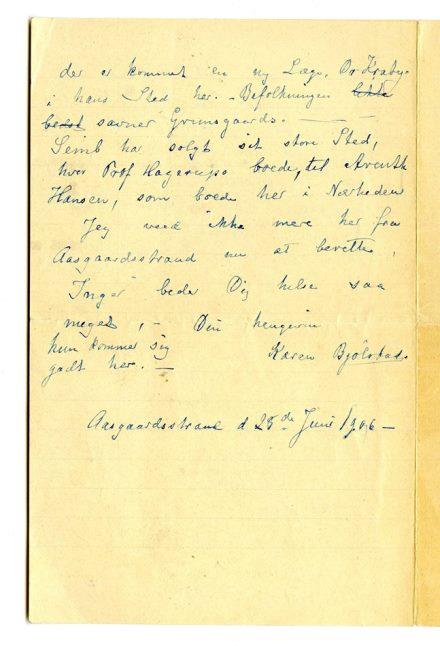 der er kommet en ny Læge, Dr Kraby
i hans Sted her. – Befolkningen
savner Grimsgaards. —
Semb har solgt sit store Sted,
hvor Prof boede, til Arenth
Hansen, som boede her i Nærheden
Jeg veed ikke mere her fra
Aasgaardsstrand nu at berette,
Inger beder Dig hilse saa
meget, – Din hengivne
hun kommer sig Karen Bjölstad.
godt her. —
Aasgaardsstrand d 28de Juni 1906 –